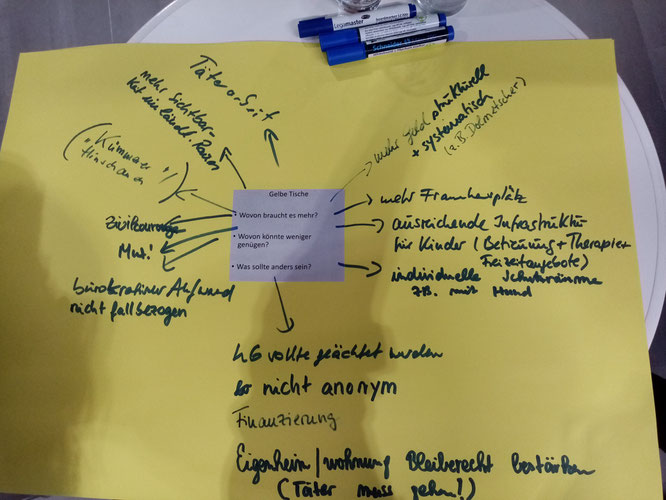 Legamaster
Schneider
Täterarbeit
mehr Sichtbar-
keit im ländl. Raum
("Kümmerer",
Hinschauen)
Zivilcourage
Mut!
bürokratischer Aufwand
nicht fallbezogen
mehr Geld strukturell
+ systematisch
(z.B. Dolmetscher)
mehr Frauenhausplätze
ausreichende Infrastruktur
für Kinder (Betreuung + Therapie +
Freizeitangebote)
individuelle Schutzräume
z.B. mit Hund
Gelbe Tische
• Wovon braucht es mehr?
• Wovon könnte weniger
genügen?
• Was sollte anders sein?
HG sollte geächtet werden
nicht anonym
Finanzierung
Eigenheim/wohnung Bleiberecht bestärken
(Täter muss gehen!)